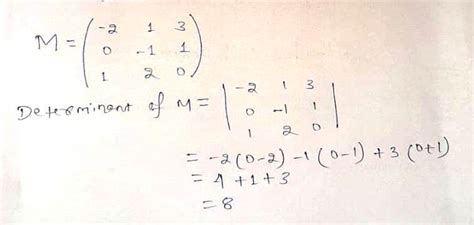 M = ( -2 1 3
0 -1 1
1 2 0 )
Determinant of M = | -2 1 3
0 -1 1
1 2 0 |
= -2(0-2) -1(0-1) +3(0+1)
= 4 +1+3
= 8